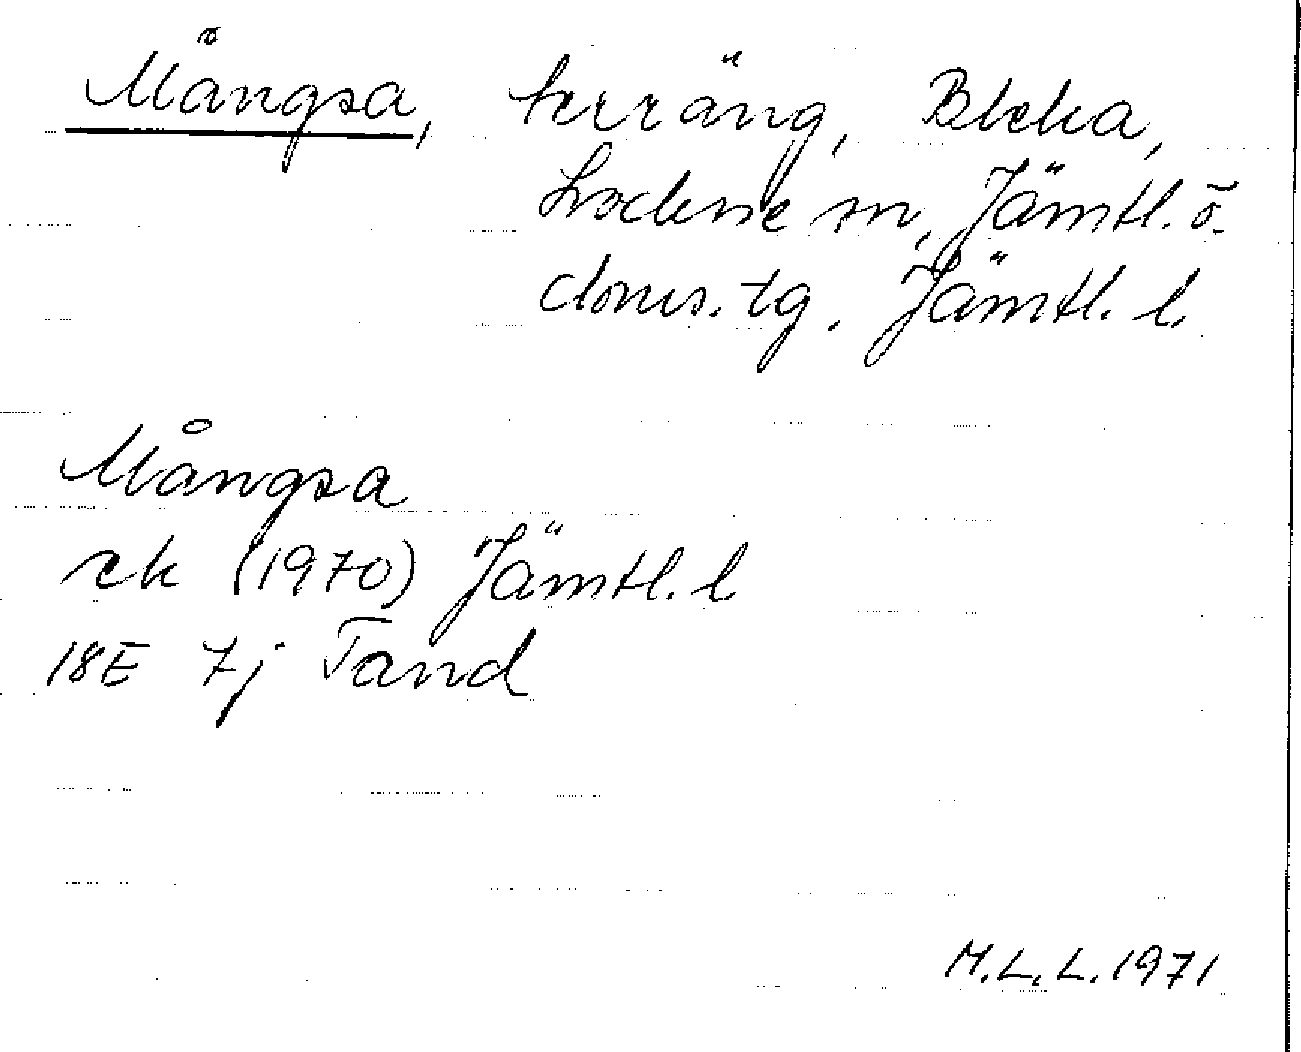 Mångsa, terräng, Bleka,
Lockne sn, Jämtl. ö.
doms. tg. Jämtl. l.
Mångsa
ek (1970) Jämtl. l
18E 7j Tand
M.L.L. 1971